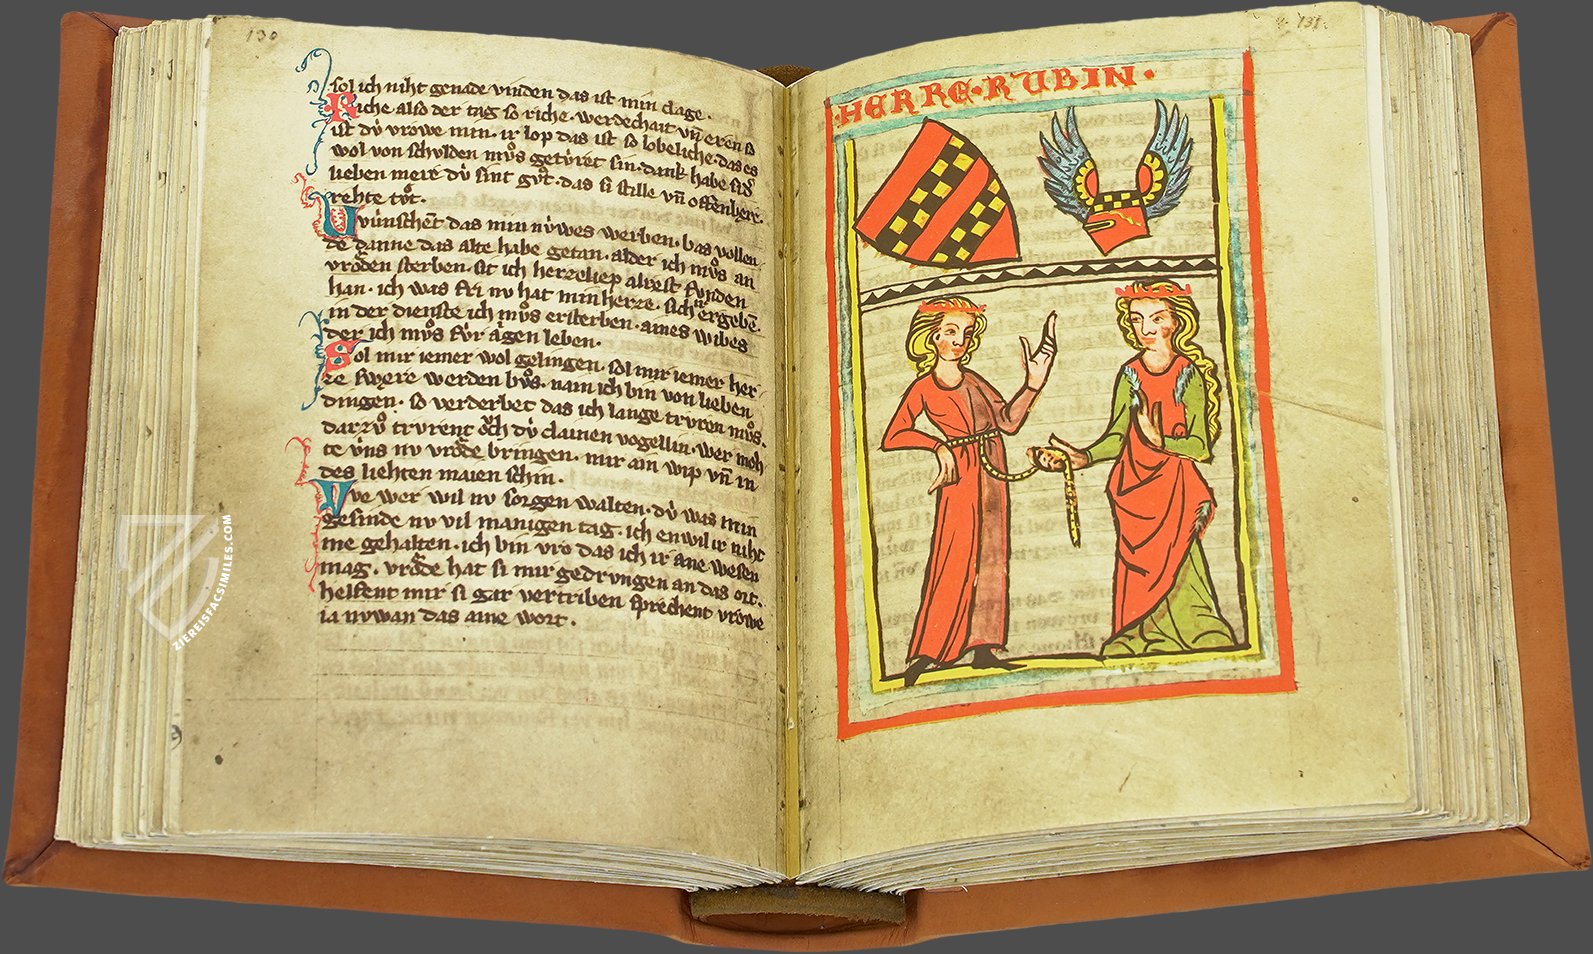 130
sol ich niht genade vinden das ist min clage.
Riche also der tag so riche. werdechait vn̄ eren so
ist dv́ vrowe min. ir lop das ist so lobeliche. das es
wol von schvlden mvͦs getv́ret sin. dank habe si
lieben meit dv́ sint gvͦt. das si stille vn̄ offenbere
rehte tvͦt.
wúnschet das min nv́wes werben. bas vollen
de danne das alte habe getan. alder ich mvͦs an
vrͦden sterben. sit ich herzeliep alrest fvnden
han. ich was fri nv hat min herze. sich ergeben.
in der dienste ich mvͦs ersterben. aines wibes
der ich mvͦs fv́r aigen leben.
Sol mir iemer wol gelingen. sol mir iemer her
ze swere werden bvͦs. nain ich bin von lieben
dingen. so verderbet das ich lange trvren mvͦs.
darzvͦ trvrent och dv́ clainen vogellin. wer moh
te v́ns nv vrode bringen. mir ain wip vn̄ in
des liehten maien schin.
We wer wil nv sorgen walten. dv́ was min
gesinde nv vil manigen tag. ich enwil ir niht
me gehalten. ich bin vro das ich ir ane wesen
mag. vrode hat si mir gedrvngen an das ort.
helfent mir si gar vertriben sprechent vrowe
ia nvwan das aine wort.
ZIEREISFACSIMILES.COM
131.
HERRE·RUBIN·